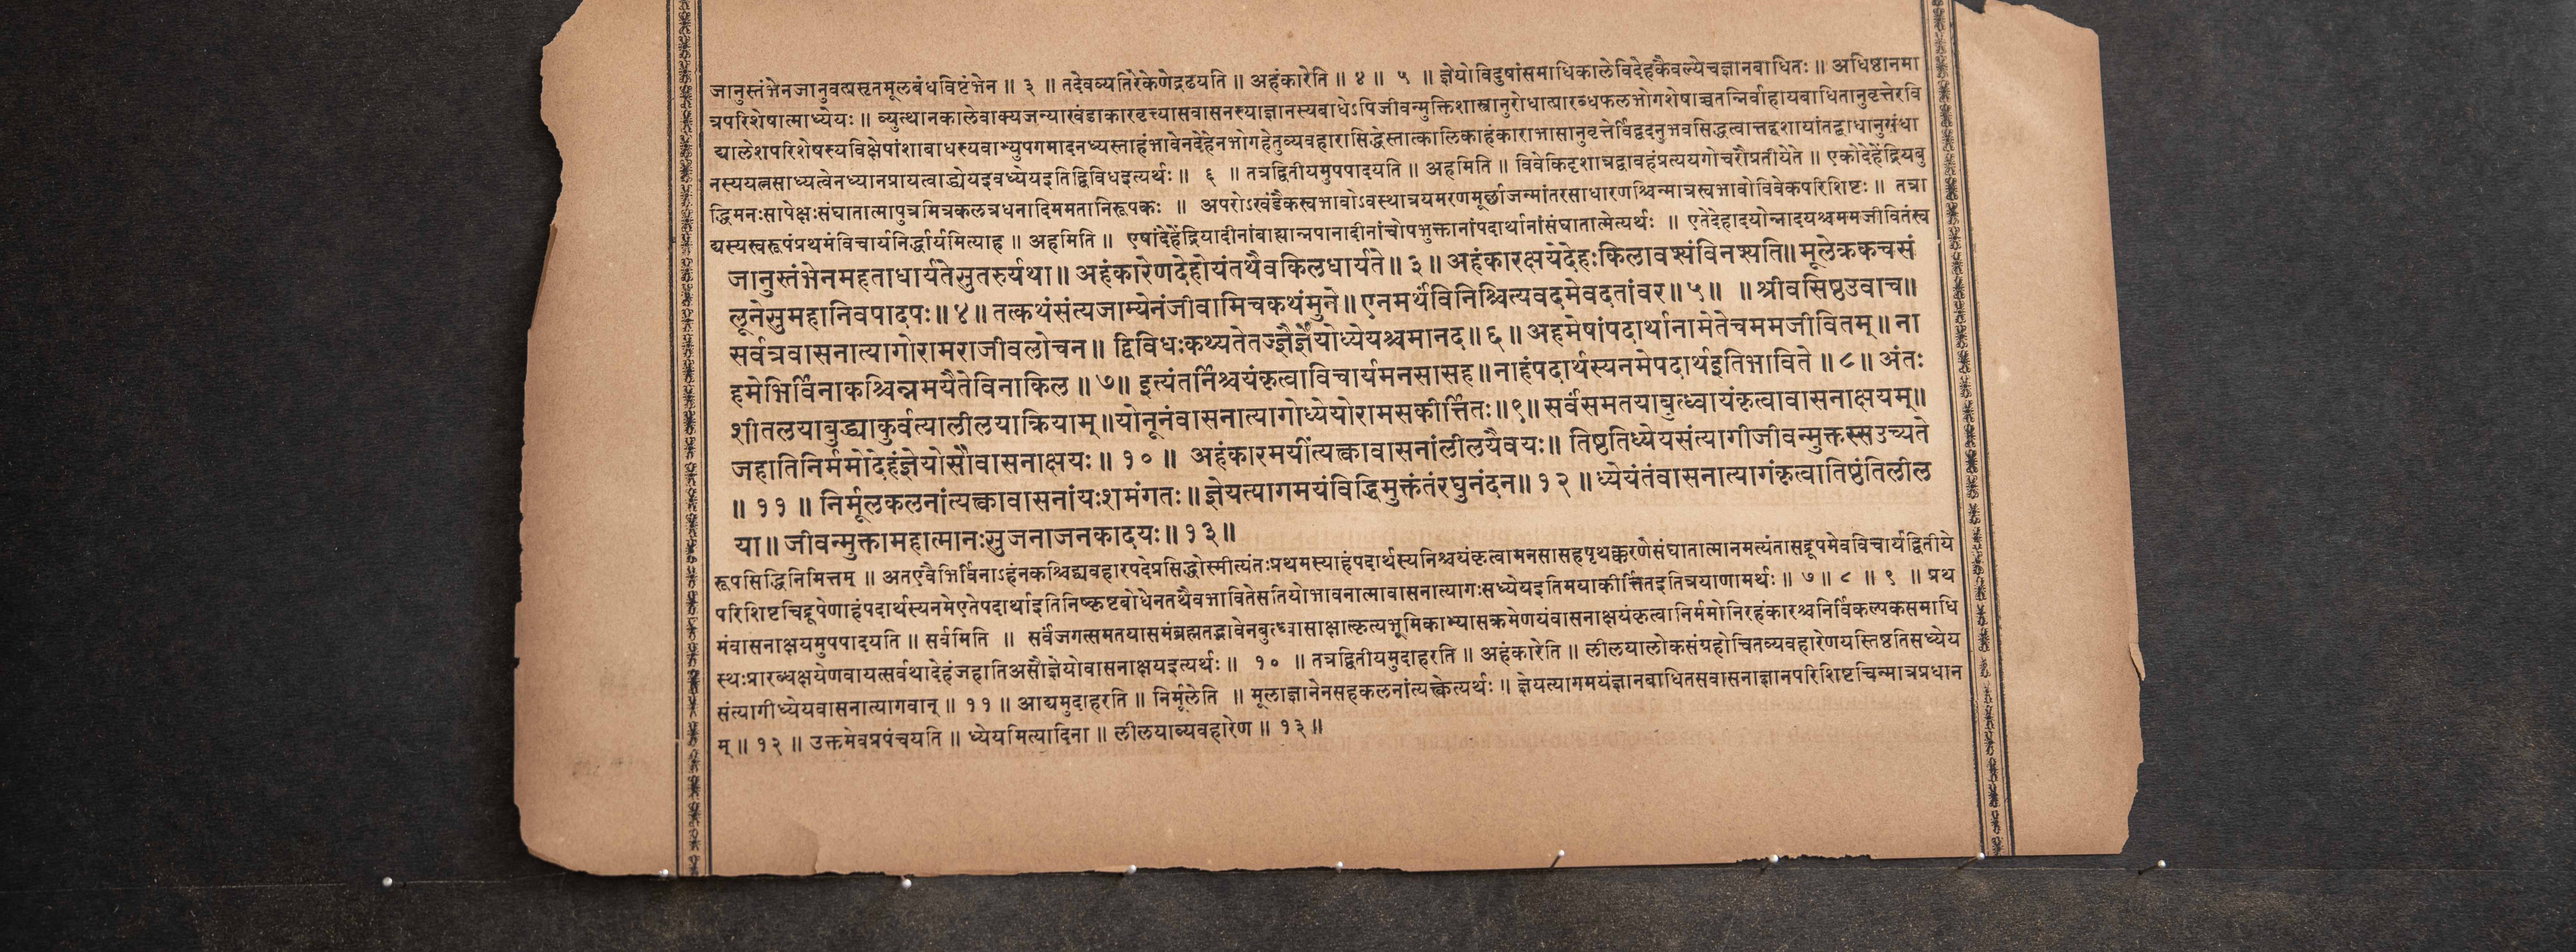 जानुस्तंभेनजानुवत्प्रसृतमूलबंधविष्टंभेन ॥ ३ ॥ तदेवव्यतिरेकेणेद्रढयति ॥ अहंकारेति ॥ ४ ॥ ५ ॥ ज्ञेयोविदुषांसमाधिकालेविदेहकैवल्येचज्ञानबाधितः ॥ अधिष्ठानमा
त्रपरिशेषात्माध्येयः ॥ व्युत्थानकालेवाक्यजन्याखंडाकारवृत्त्यासवासनस्याज्ञानस्यबाधेऽपिजीवन्मुक्तिशास्त्रानुरोधात्प्रारब्धफलभोगशेषाच्चतन्निर्वाहायबाधितानुवृत्तेरवि
द्यालेशपरिशेषस्यविक्षेपांशाबाधस्यवाभ्युपगमादनध्यस्ताहंभावेनदेहेनभोगहेतुव्यवहारासिद्धेस्तात्कालिकाहंकाराभासानुवृत्तेर्विद्वदनुभवसिद्धत्वात्तद्दशायांतद्बाधानुसंधा
नस्ययत्नसाध्यत्वेनध्यानप्रायत्वाद्ध्येयइवध्येयइतिद्विविधइत्यर्थः ॥ ६ ॥ तत्रद्वितीयमुपपादयति ॥ अहमिति ॥ विवेकिदृशात्रद्वावहंप्रत्ययगोचरौप्रतीयेते ॥ एकोदेहेंद्रियबु
द्धिमनःसापेक्षःसंघातात्मापुत्रमित्रकलत्रधनादिममतानिरूपकः ॥ अपरोऽखंडैकस्वभावोऽवस्थात्रयमरणमूर्छाजन्मांतरसाधारणश्चिन्मात्रस्वभावोविवेकपरिशिष्टः ॥ तत्रा
द्यस्यस्वरूपंप्रथमंविचार्यनिर्द्धार्यमित्याह ॥ अहमिति ॥ एषांदेहेंद्रियादीनांबाह्यान्नपानादीनांचोपभुक्तानांपदार्थानांसंघातात्मेत्यर्थः ॥ एतेदेहादयोन्नादयश्चममजीवितंस्व
जानुस्तंभेनमहताधार्यतेसुतरुर्यथा ॥ अहंकारेणदेहोयंतथैवकिलधार्यते ॥ ३ ॥ अहंकारक्षयेदेहःकिलावश्यंविनश्यति ॥ मूलेक्रकचसं
लूनेसुमहानिवपादपः ॥ ४ ॥ तत्कथंसंत्यजाम्येनंजीवामिचकथंमुने ॥ एनमर्थंविनिश्चित्यवदमेवदतांवर ॥ ५ ॥ ॥ श्रीवसिष्ठउवाच ॥
सर्वत्रवासनात्यागोरामराजीवलोचन ॥ द्विविधःकथ्यतेतज्ज्ञैर्ज्ञेयोध्येयश्चमानद ॥ ६ ॥ अहमेषांपदार्थानामेतेचममजीवितम् ॥ ना
हमेभिर्विनाकश्चिन्नमयैतेविनाकिल ॥ ७ ॥ इत्यंतर्निश्चयंकृत्वाविचार्यमनसासह ॥ नाहंपदार्थस्यनमेपदार्थइतिभाविते ॥ ८ ॥ अंतः
शीतलयाबुद्ध्याकुर्वत्यालीलयाक्रियाम् ॥ योनूनंवासनात्यागोध्येयोरामसकीर्त्तितः ॥ ९ ॥ सर्वंसमतयाबुत्ध्वायंकृत्वावासनाक्षयम् ॥
जहातिनिर्ममोदेहंज्ञेयोसौवासनाक्षयः ॥ १० ॥ अहंकारमयींत्यक्त्वावासनांलीलयैवयः ॥ तिष्ठतिध्येयसंत्यागीजीवन्मुक्तस्सउच्यते
॥ ११ ॥ निर्मूलकलनांत्यक्त्वावासनांयःशमंगतः ॥ ज्ञेयत्यागमयंविद्धिमुक्तंतंरघुनंदन ॥ १२ ॥ ध्येयंतंवासनात्यागंकृत्वातिष्ठंतिलील
या ॥ जीवन्मुक्तामहात्मानःसुजनाजनकादयः ॥ १३ ॥
रूपसिद्धिनिमित्तम् ॥ अतएवैभिर्विनाऽहंनकश्चिद्व्यवहारपदेप्रसिद्धोस्मीत्यंतःप्रथमस्याहंपदार्थस्यनिश्चयंकृत्वामनसासहपृथक्करणेसंघातात्मानमत्यंतासद्रूपमेवविचार्यद्वितीये
परिशिष्टचिद्रूपेणाहंपदार्थस्यनमेएतेपदार्थाइतिनिष्कृष्टबोधेनतथैवभावितेसतियोभावनात्मावासनात्यागःसध्येयइतिमयाकीर्त्तितइतित्रयाणामर्थः ॥ ७ ॥ ८ ॥ ९ ॥ प्रथ
मंवासनाक्षयमुपपादयति ॥ सर्वमिति ॥ सर्वंजगत्समतयासमंब्रह्मतद्भावेनबुत्ध्वासाक्षात्कृत्यभूमिकाभ्यासक्रमेणयंवासनाक्षयंकृत्वानिर्ममोनिरहंकारश्चनिर्विकल्पकसमाधि
स्थःप्रारब्धक्षयेणवायत्सर्वथादेहंजहातिअसौज्ञेयोवासनाक्षयइत्यर्थः ॥ १० ॥ तत्रद्वितीयमुदाहरति ॥ अहंकारेति ॥ लीलयालोकसंग्रहोचितव्यवहारेणयस्तिष्ठतिसध्येय
संत्यागीध्येयवासनात्यागवान् ॥ ११ ॥ आद्यमुदाहरति ॥ निर्मूलेति ॥ मूलाज्ञानेनसहकलनांत्यक्त्वेत्यर्थः ॥ ज्ञेयत्यागमयंज्ञानबाधितसवासनाज्ञानपरिशिष्टचिन्मात्रप्रधान
म् ॥ १२ ॥ उक्तमेवप्रपंचयति ॥ ध्येयमित्यादिना ॥ लीलयाव्यवहारेण ॥ १३ ॥